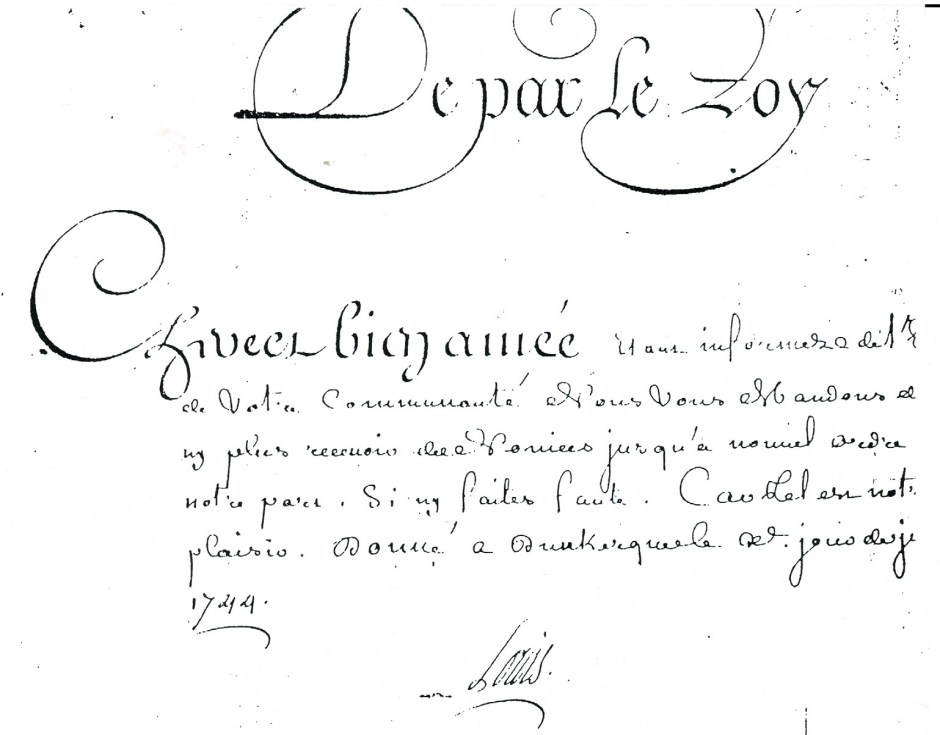 De par Le Roy
Chere et bien amée étant informez de l'
de Votre Communauté Nous Vous Mandons de
ny plus recevoir des Novices jusqu'à nouvel ordre
notre part. Si ny faites faute. Car tel est notre
plaisir. Donné a Dunkerque le jour de
1744.
Louis.